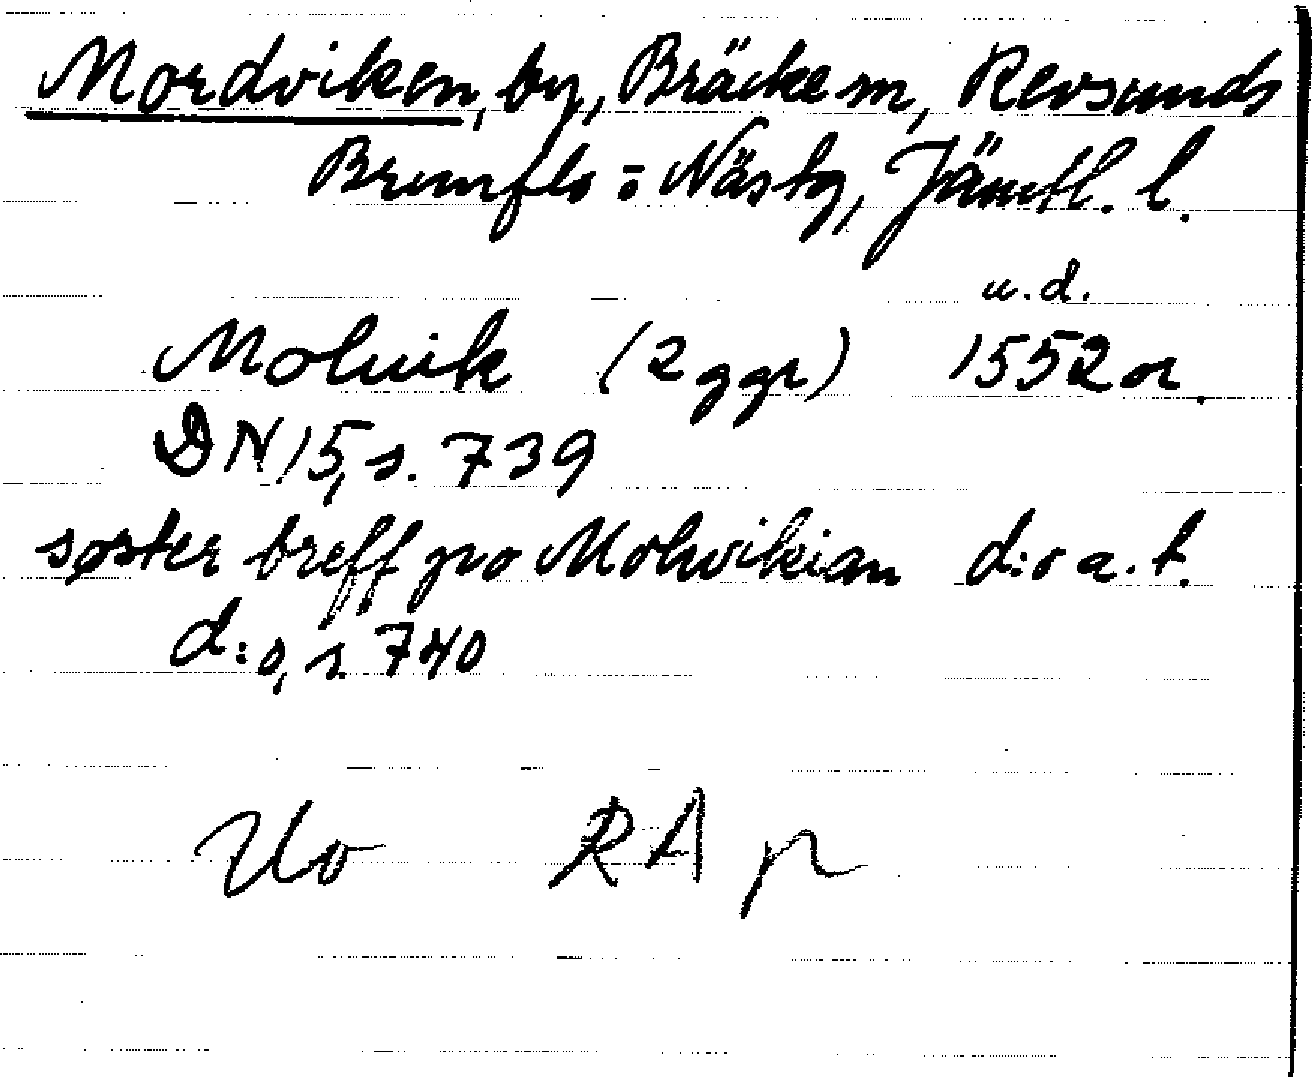 Mordviken, by, Bräcke sn, Revsunds
Brunflo = Nästg, Jämtl. l.
u.d.
Moluik (2 ggr) 1552 or.
DN 15, s. 739
søster breff pro Molwikian d:o a. t.
d:o, s. 740
RA p